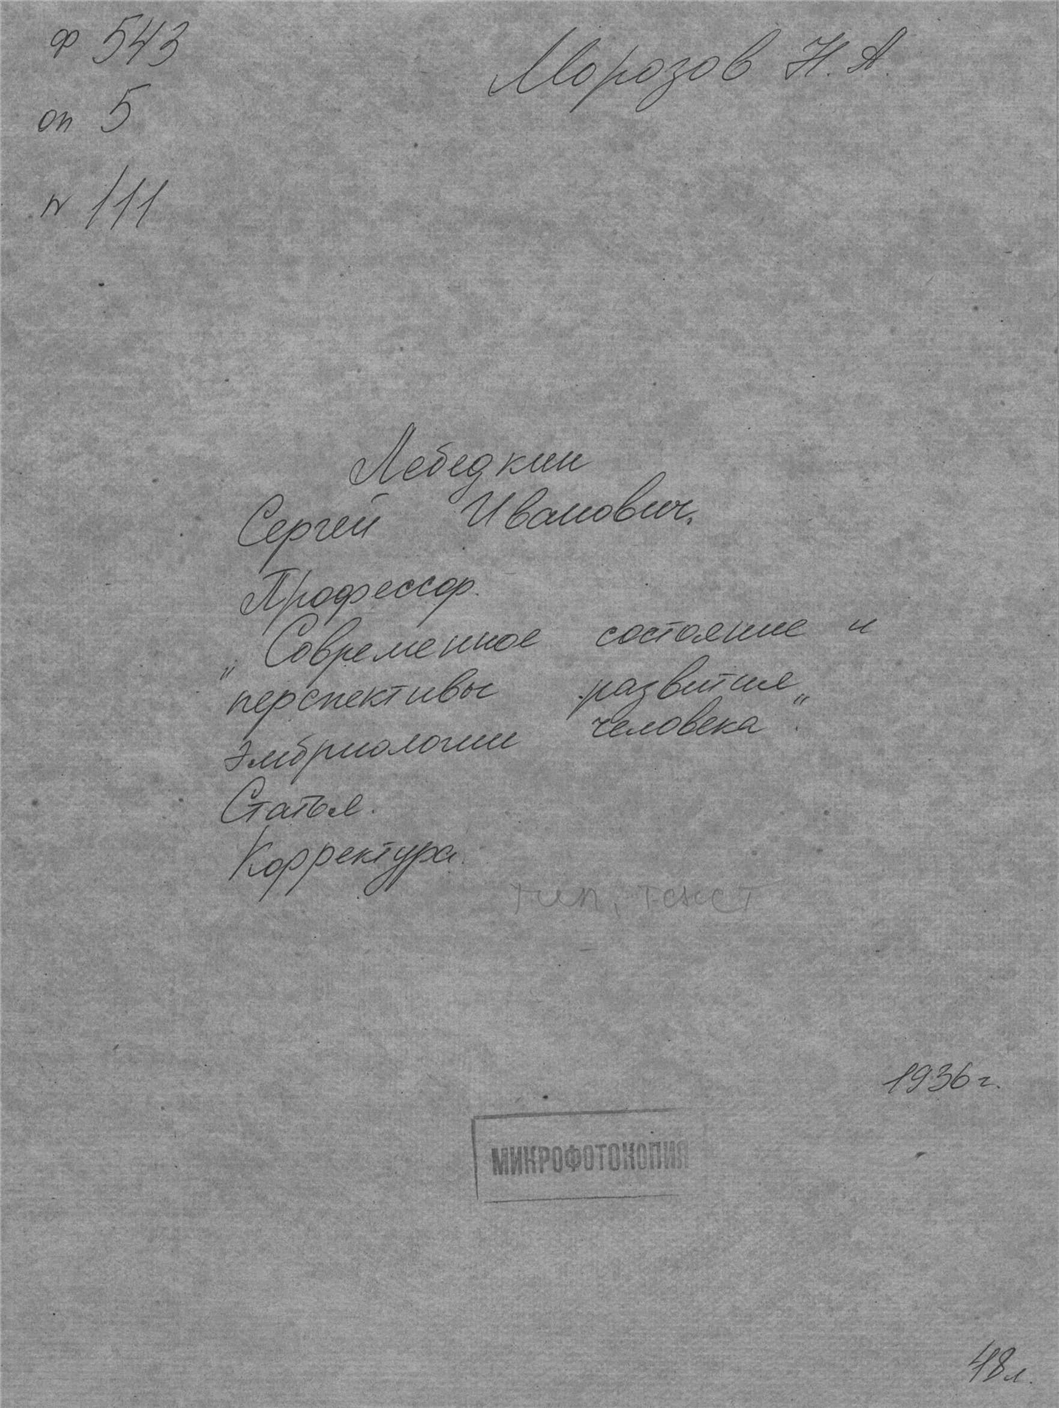 ф 543
Морозов Н. А.
оп 5
N 111
Лебедкин
Сергей Иванович.
Профессор.
„Современное состояние и
перспективы развития
эмбриологии человека“.
Статья.
Корректура.
тип. текст
1936 г.
МИКРОФОТОКОПИЯ
48 л.